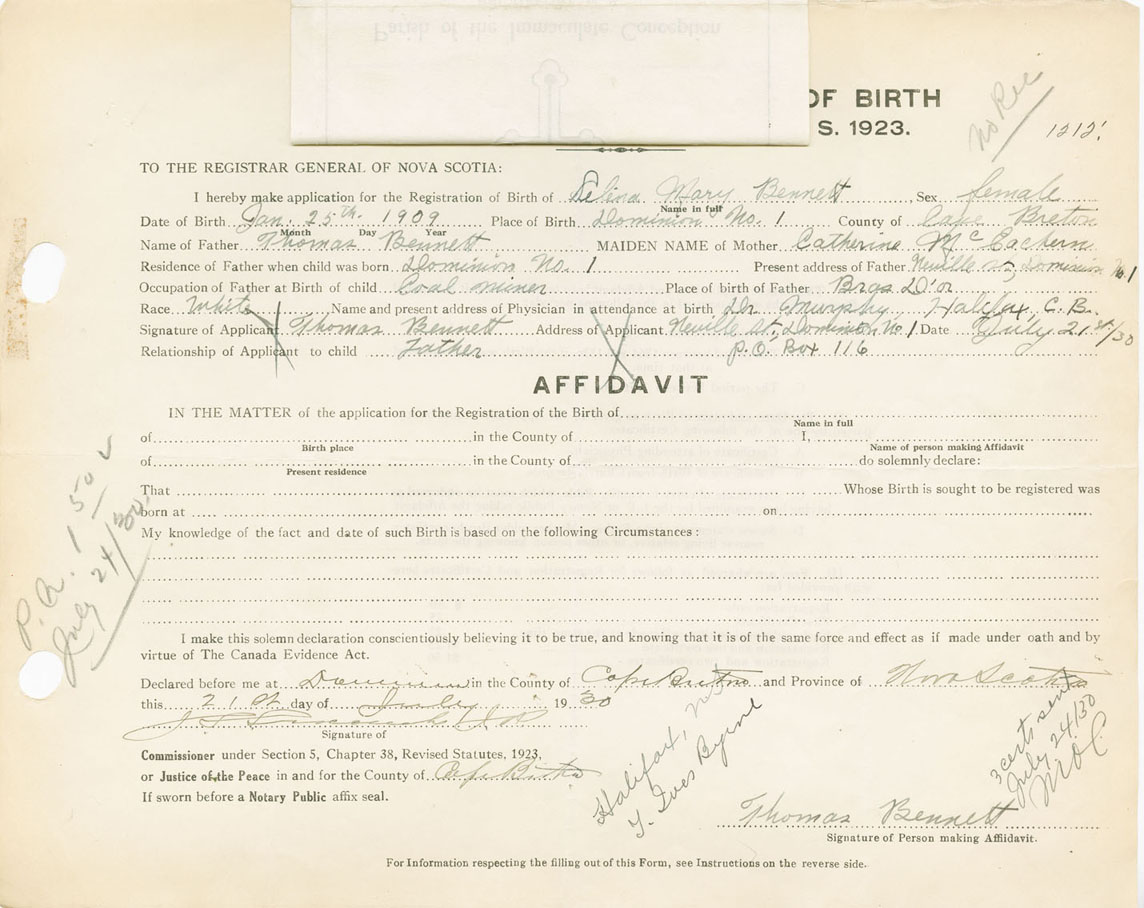 Parish of the Immaculate Conception
OF BIRTH
S. 1923.
No Rec
1212'
TO THE REGISTRAR GENERAL OF NOVA SCOTIA:
I hereby make application for the Registration of Birth of Selina Mary Bennett Sex female
Name in full
Date of Birth Jan. 25th. 1909 Place of Birth Dominion No. 1 County of Cape Breton
Month Day Year
Name of Father Thomas Bennett MAIDEN NAME of Mother Catherine McEachern
Residence of Father when child was born Dominion No. 1 Present address of Father Neville St, Dominion No 1
Occupation of Father at Birth of child Coal miner Place of birth of Father Bras D'or
Race White Name and present address of Physician in attendance at birth Dr Murphy Halifax, C.B.
Signature of Applicant Thomas Bennett Address of Applicant Neville St, Dominion, No 1. Date July 21st/30
Relationship of Applicant to child Father P.O. Box 116
AFFIDAVIT
IN THE MATTER of the application for the Registration of the Birth of
Name in full
of in the County of I,
Birth place Name of person making Affidavit
of in the County of do solemnly declare:
Present residence
That Whose Birth is sought to be registered was
born at on
My knowledge of the fact and date of such Birth is based on the following Circumstances:
P.A. 1 50
July 24/30
I make this solemn declaration conscientiously believing it to be true, and knowing that it is of the same force and effect as if made under oath and by
virtue of The Canada Evidence Act.
Declared before me at Dominion in the County of Cape Breton and Province of Nova Scotia
this 21st day of July 1930
Signature of
Commissioner under Section 5, Chapter 38, Revised Statutes, 1923,
or Justice of the Peace in and for the County of Cape Breton
If sworn before a Notary Public affix seal.
Halifax, NS
Y. Ives Byrne
3 certs sent
July 24/30
Thomas Bennett
Signature of Person making Affidavit.
For Information respecting the filling out of this Form, see Instructions on the reverse side.